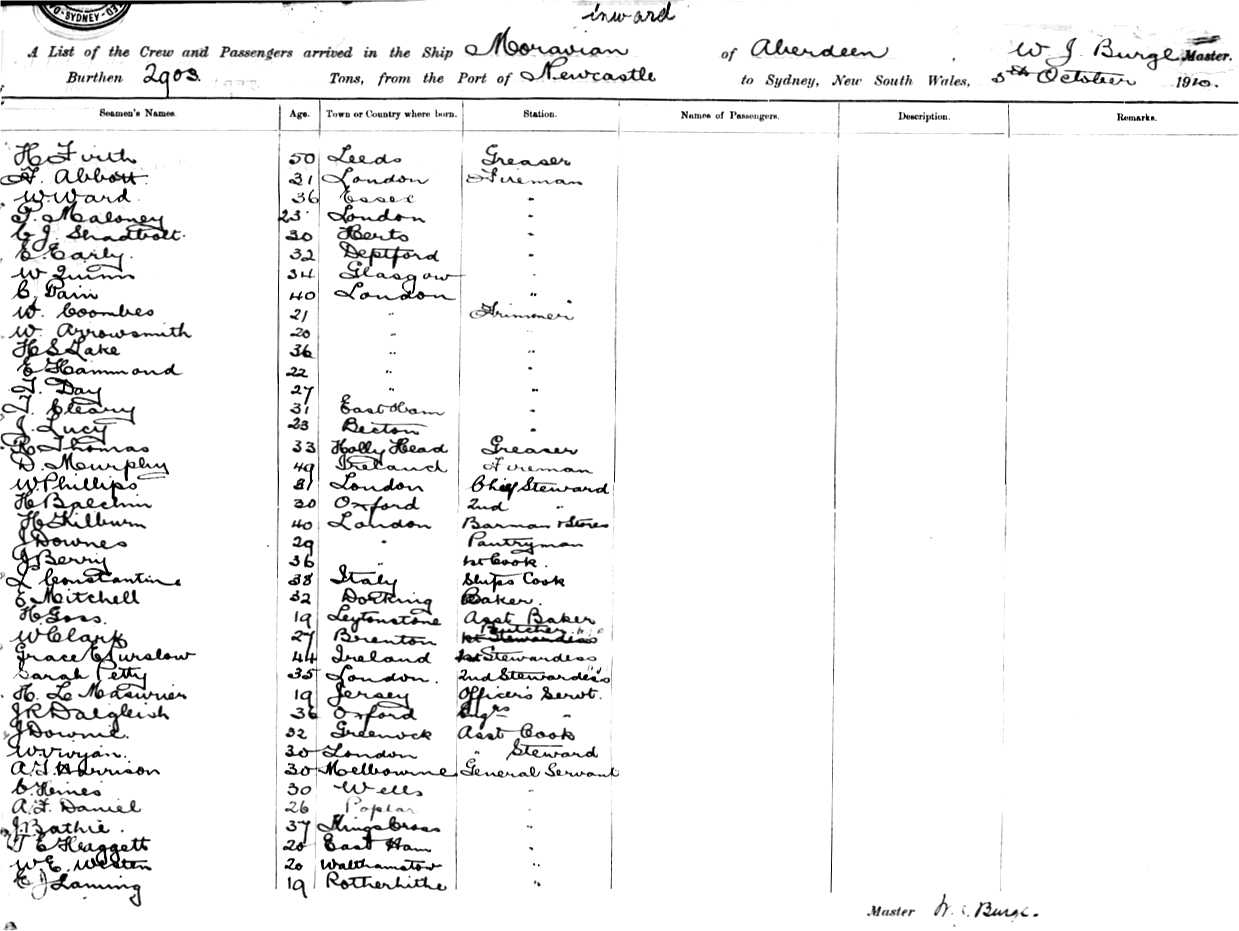 SYDNEY
inward
A List of the Crew and Passengers arrived in the Ship Moravian of Aberdeen, W J Burge Master.
Burthen 2903 Tons, from the Port of Newcastle to Sydney, New South Wales, 5th October 1910.
Seamen's Names. Age. Town or Country where born. Station. Names of Passengers. Description. Remarks.
H Firth 50 Leeds Greaser
F. Abbott 31 London Fireman
W. Ward 36 Essex "
T. Maloney 23 London "
C J. Shadbolt 30 Herts "
E. Early. 32 Deptford "
W Quinn 34 Glasgow "
C. Pain 40 London "
W. Coombes 21 " Trimmer
W. Arrowsmith 20 " "
H S Lake 36 " "
E Hammond 22 " "
T. Day 27 " "
T. Cleary 31 East Ham "
J. Lucy 23 Becton "
R Thomas 33 Holly Head Greaser
D. Murphy 49 Ireland Fireman
W. Phillips 31 London Chief Steward
H Balchin 30 Oxford 2nd "
H. Kilburn 40 London Barman & Stores
J Downes 29 " Pantryman
J Berry 36 " 1st Cook.
L Constantine 38 Italy Ships Cook
E Mitchell 32 Dorking Baker.
H Goss. 19 Leytonstone Asst Baker
W Clark 27 Brenton Butcher 1st Stewardess
Grace E Purslow 44 Ireland 1st Stewardess
Sarah Petty 35 London. 2nd Stewardess
H. Le Masurier 19 Jersey Officer's Servt.
J R Dalgleish 36 Oxford Engrs "
J Downie. 32 Greenock Asst Cook
W. Vivyan. 30 London " Steward
A. T. Harrison 30 Melbourne General Servant
C. Heines 30 Wells "
A. F. Daniel 26 Poplar "
J. Bathie. 37 Kings Cross "
T E Heaggett 20 East Ham "
W. E. Westen 20 Walthamstow "
E J Laming 19 Rotherhithe "
Master W. J. Burge.